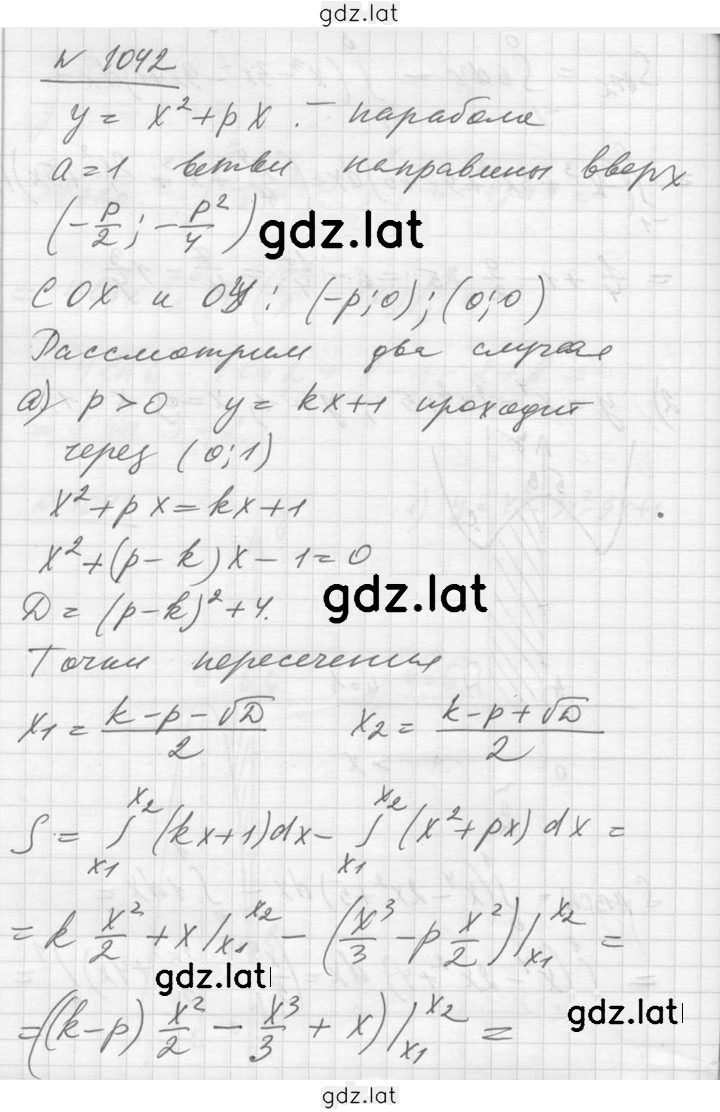 gdz.lat
N 1042
y = x² + px. – парабола
a = 1 ветви направлены вверх
(-p/2; -p²/4)
gdz.lat
C OX и OY: (-p; 0); (0; 0)
Рассмотрим два случая
а) p > 0 y = kx+1 проходит
через (0; 1)
x² + px = kx + 1
x² + (p - k)x - 1 = 0
D = (p-k)² + 4.
gdz.lat
Точки пересечения
x₁ = (k-p-√D)/2 x₂ = (k-p+√D)/2
S = ∫_{x1}^{x2} (kx+1)dx - ∫_{x1}^{x2} (x²+px)dx =
= k x²/2 + x /_{x1}^{x2} - (x³/3 - p x²/2)/_{x1}^{x2} =
gdz.lat
= ((k-p) x²/2 - x³/3 + x)/_{x1}^{x2} =
gdz.lat
gdz.lat